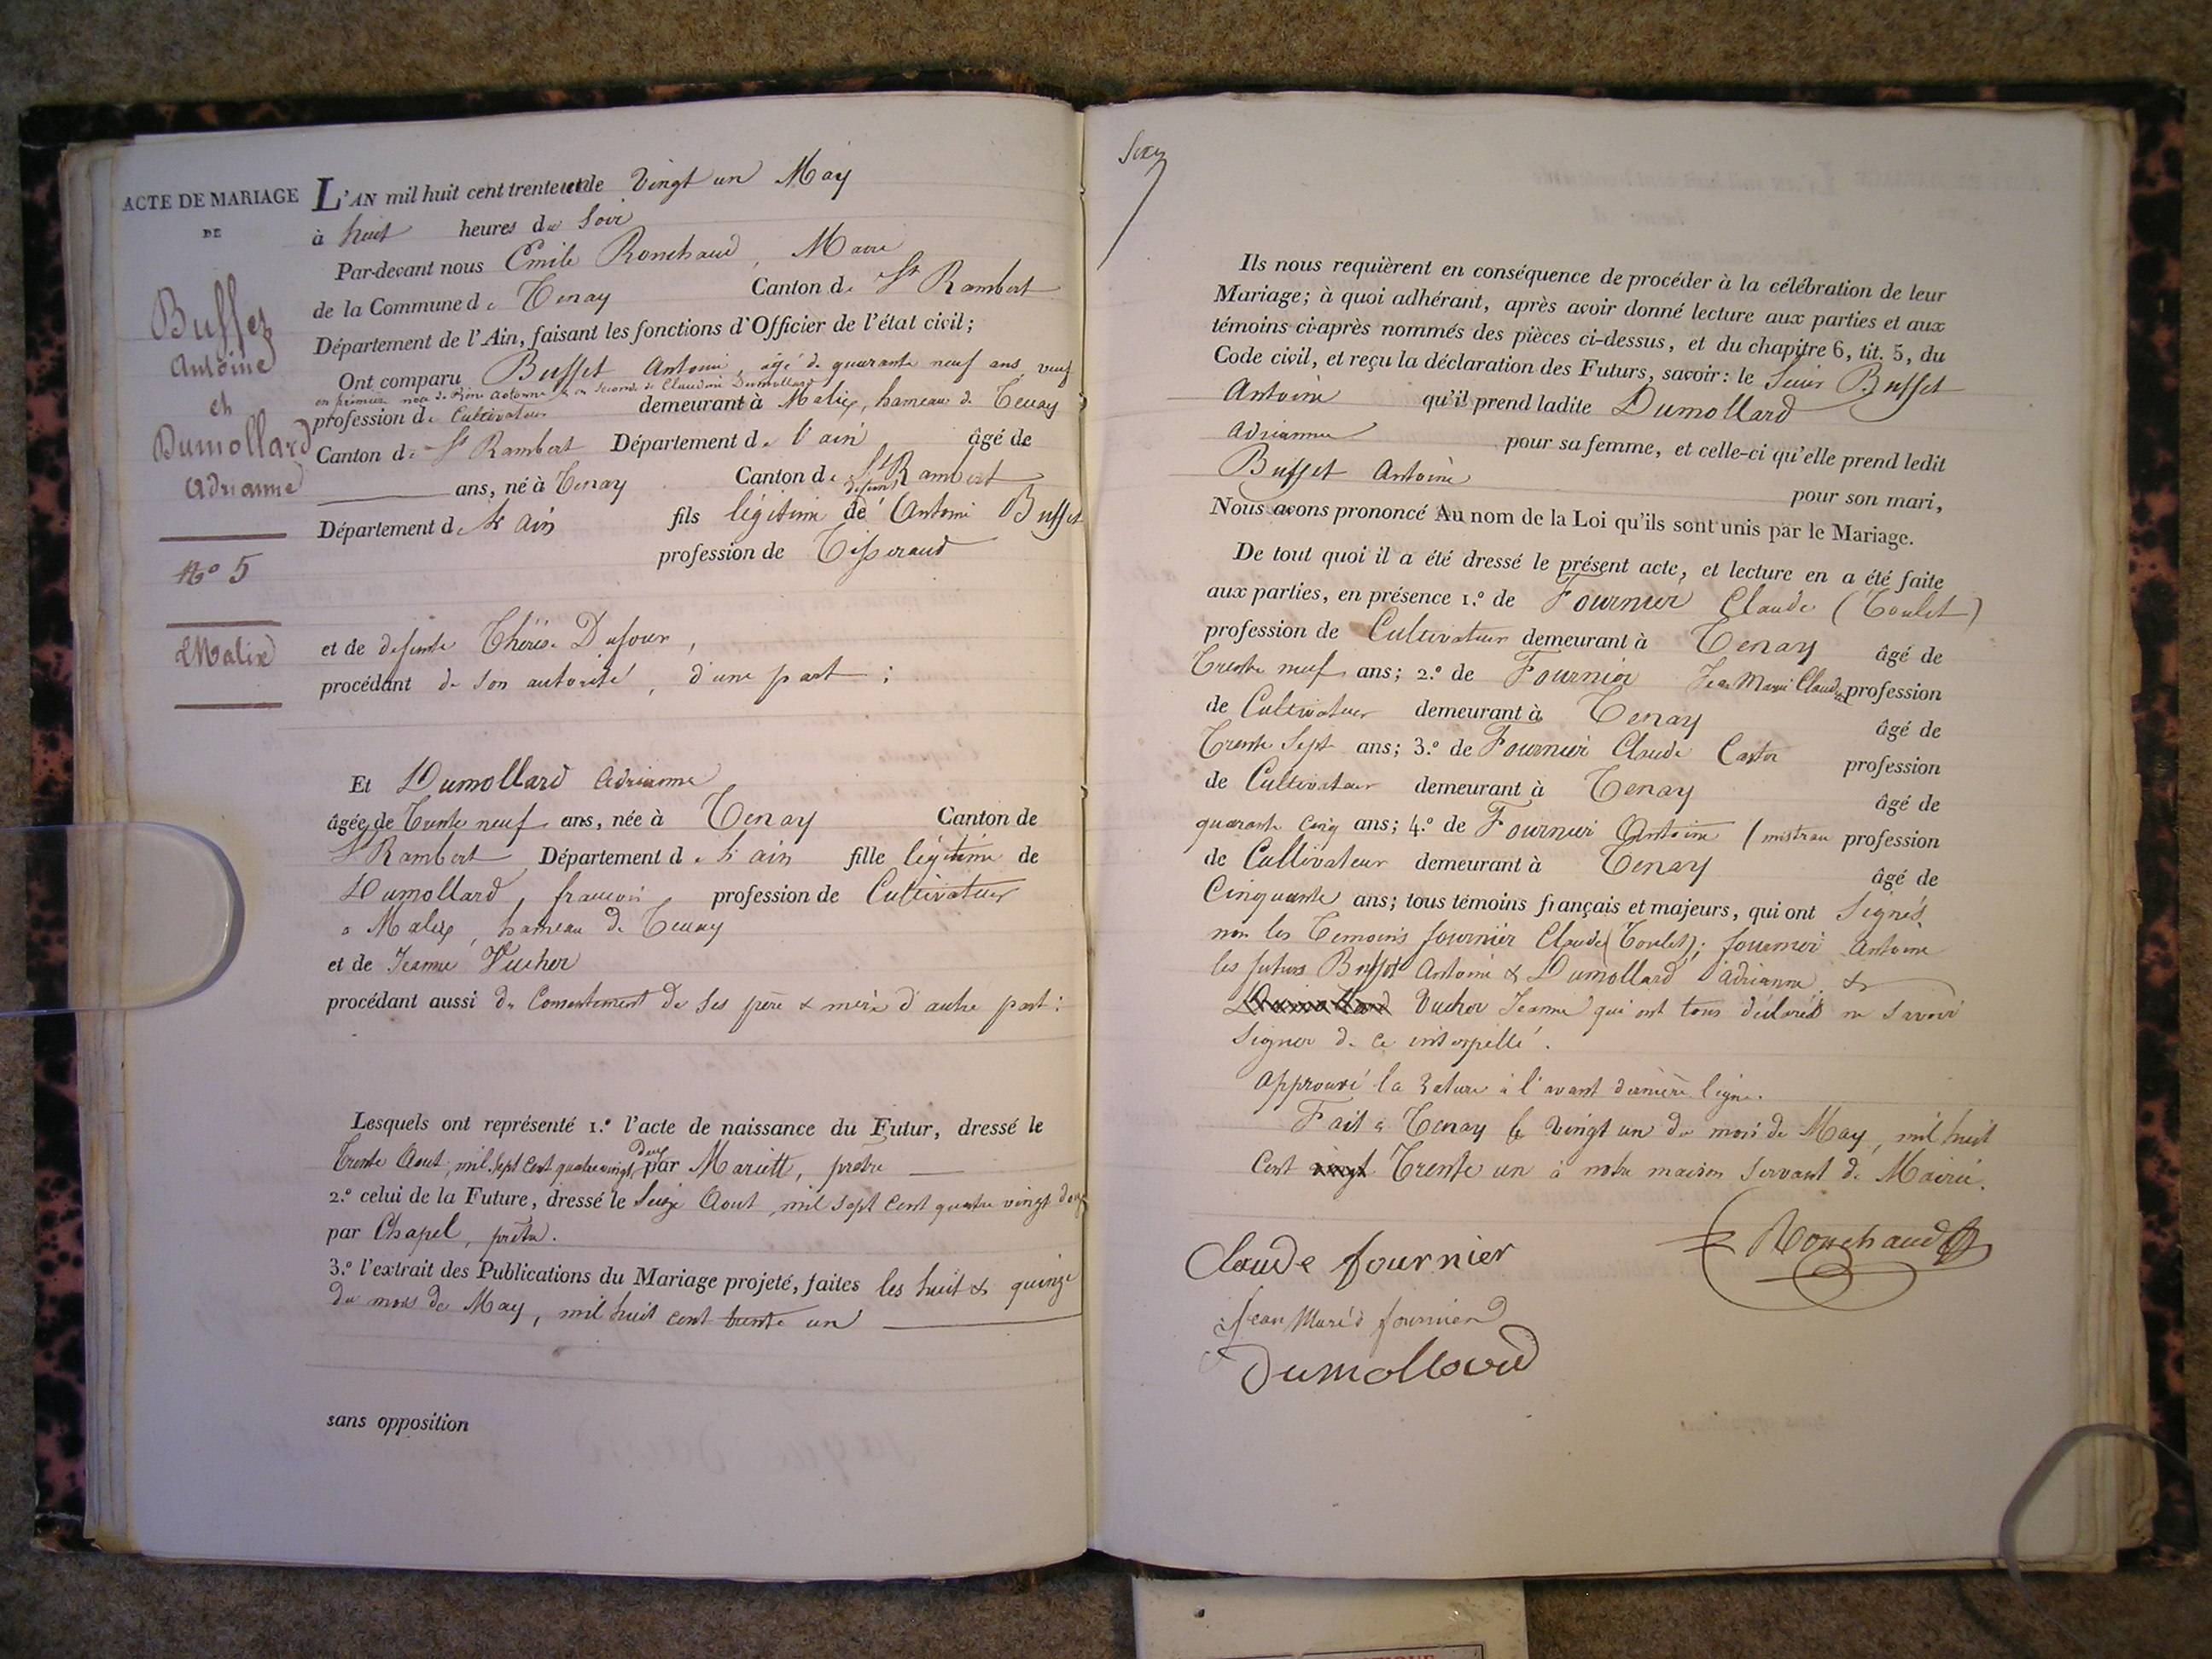 ACTE DE MARIAGE
DE
Buffet
Antoine
et
Dumollard
Adrianne
No 5
Malix
L'AN mil huit cent trente et un le vingt un May
à huit heures du Soir
Par-devant nous Emile Ronchaud, Maire
de la Commune de Tenay Canton de St Rambert
Département de l'Ain, faisant les fonctions d'Officier de l'état civil;
Ont comparu Buffet Antoine, âgé de quarante neuf ans, veuf
en première noce de & en seconde de Claudine Dumollard
profession de Cultivateur demeurant à Malix, hameau de Tenay
Canton de St Rambert Département de l'ain âgé de
ans, né à Tenay Canton de St Rambert
Département de l'ain fils légitime de défunt Antoine Buffet
profession de Tisserand
et de defunte Thérèse Dufour,
procédant de son autorité, d'une part;
Et Dumollard Adrianne
âgée de Trente neuf ans, née à Tenay Canton de
St Rambert Département de l'ain fille légitime de
Dumollard, francois profession de Cultivateur
a Malix, hameau de Tenay
et de Jeanne Vucher
procédant aussi du Consentement de ses père & mère d'autre part:
Lesquels ont représenté 1.º l'acte de naissance du Futur, dressé le
Trente Aout, mil sept Cent quatre vingt deux par Mariett, pretre
2.º celui de la Future, dressé le Seize Aout mil sept Cent quatre vingt douze
par Chapel, prêtre.
3.º l'extrait des Publications du Mariage projeté, faites les huit & quinze
du mois de May, mil huit cent trente un
sans opposition
Ils nous requièrent en conséquence de procéder à la célébration de leur
Mariage; à quoi adhérant, après avoir donné lecture aux parties et aux
témoins ci-après nommés des pièces ci-dessus, et du chapitre 6, tit. 5, du
Code civil, et reçu la déclaration des Futurs, savoir: le Sieur Buffet
Antoine qu'il prend ladite Dumollard
Adrianne pour sa femme, et celle-ci qu'elle prend ledit
Buffet Antoine pour son mari,
Nous avons prononcé Au nom de la Loi qu'ils sont unis par le Mariage.
De tout quoi il a été dressé le présent acte, et lecture en a été faite
aux parties, en présence 1.º de Fournier Claude (Toulet)
profession de Cultivateur demeurant à Tenay âgé de
Trente neuf ans; 2.º de Fournier Jean Marie Claude profession
de Cultivateur demeurant à Tenay âgé de
Trente Sept ans; 3.º de Fournier Claude Castor profession
de Cultivateur demeurant à Tenay âgé de
quarante Cinq ans; 4.º de Fournier Antoine (mistrau profession
de Cultivateur demeurant à Tenay âgé de
Cinquante ans; tous témoins français et majeurs, qui ont Signés
non les Temoins fournier Claude (Toulet); fournier Antoine
les futurs Buffet Antoine & Dumollard Adrianne &
Dumollard Vucher Jeanne qui ont tous déclarés ne savoir
Signer de ce interpellé.
Approuvé la rature à l'avant dernière ligne.
Fait à Tenay le vingt un du mois de May, mil huit
Cent vingt Trente un à notre maison servant de Mairie.
Ronchaud
Claude fournier
Jean Marie fournier
Dumollard